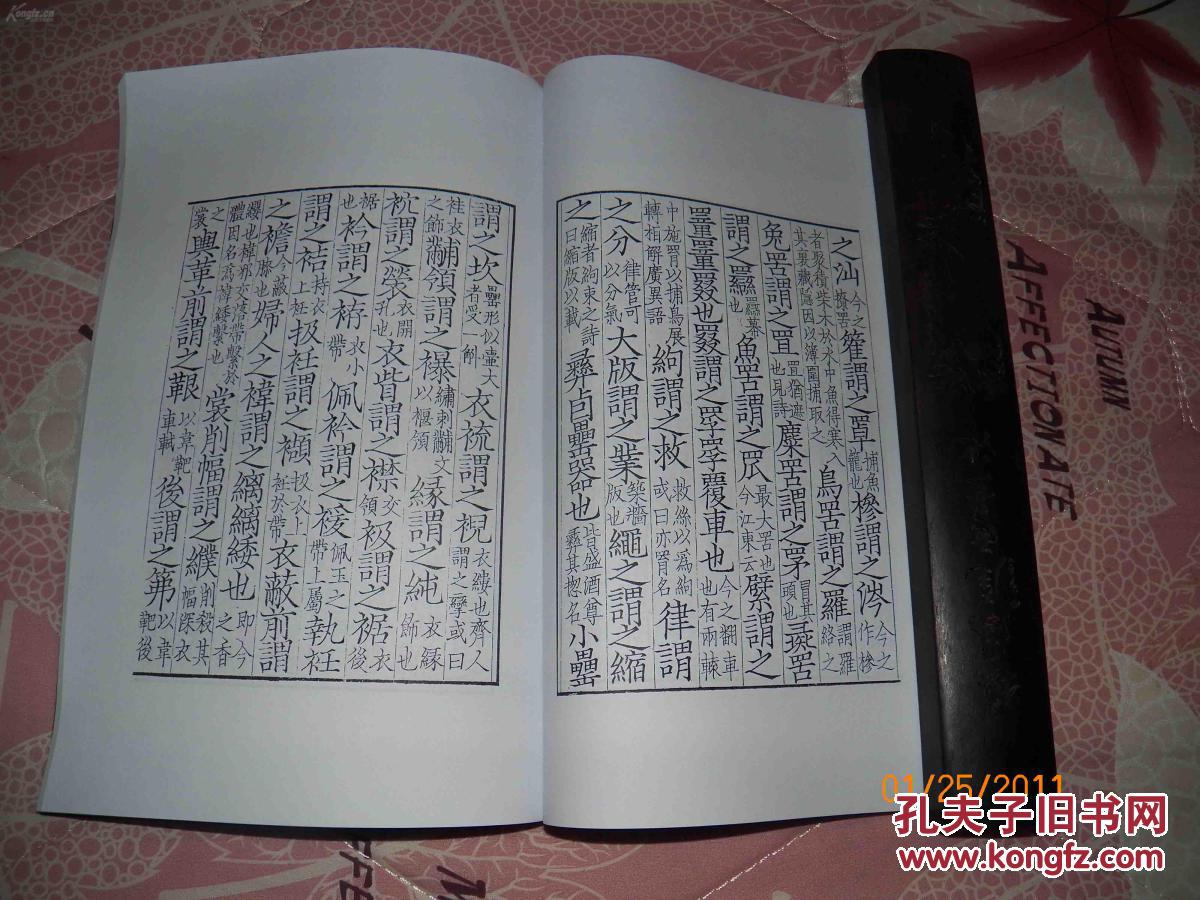 Kongfz.cn
之汕今之撩罟篧謂之罩捕魚籠也槮謂之涔今之作槮
者聚積柴木於水中魚得寒入其裏藏隱因以簿圍捕取之鳥罟謂之羅謂羅絡之
兔罟謂之罝罝猶遮也見詩麋罟謂之罞冒其頭也彘罟
謂之羉羉幕也魚罟謂之罛最大罟也今江東云繴謂之
罿罿罬也罬謂之罦罦覆車也今之翻車也有兩轅
中施罥以捕鳥展轉相解廣異語絇謂之救救絲以爲絇或曰亦罥名律謂
之分律管可以分氣大版謂之業築牆版也繩之謂之縮
之縮者約束之詩曰縮版以載彝卣罍器也皆盛酒尊彝其揔名小罍
謂之坎罍形似壷大者受一斛衣梳謂之祝衣縷也齊人謂之攣或曰
袿衣之飾黼領謂之襮繡刺黼文以褗領緣謂之純衣緣飾也
袕謂之褮衣開孔也衣眥謂之襟交領衱謂之裾衣
裾也衿謂之袸衣小帶佩衿謂之褑佩玉之帶上屬執衽
謂之袺持衣上衽扱衽謂之襭扱衣上衽於帶衣蔽前謂
之襜今蔽膝也婦人之褘謂之縭縭緌也即今之香
纓也褘邪交落帶繫於體因名為褘緌繫也裳削幅謂之纀削殺其幅深衣
之裳輿革前謂之鞎以韋靶車軾後謂之笰以韋靶後
AUTUMN
AFFECTIONATE
AFFE
01/25/2011
孔夫子旧书网
www.kongfz.com